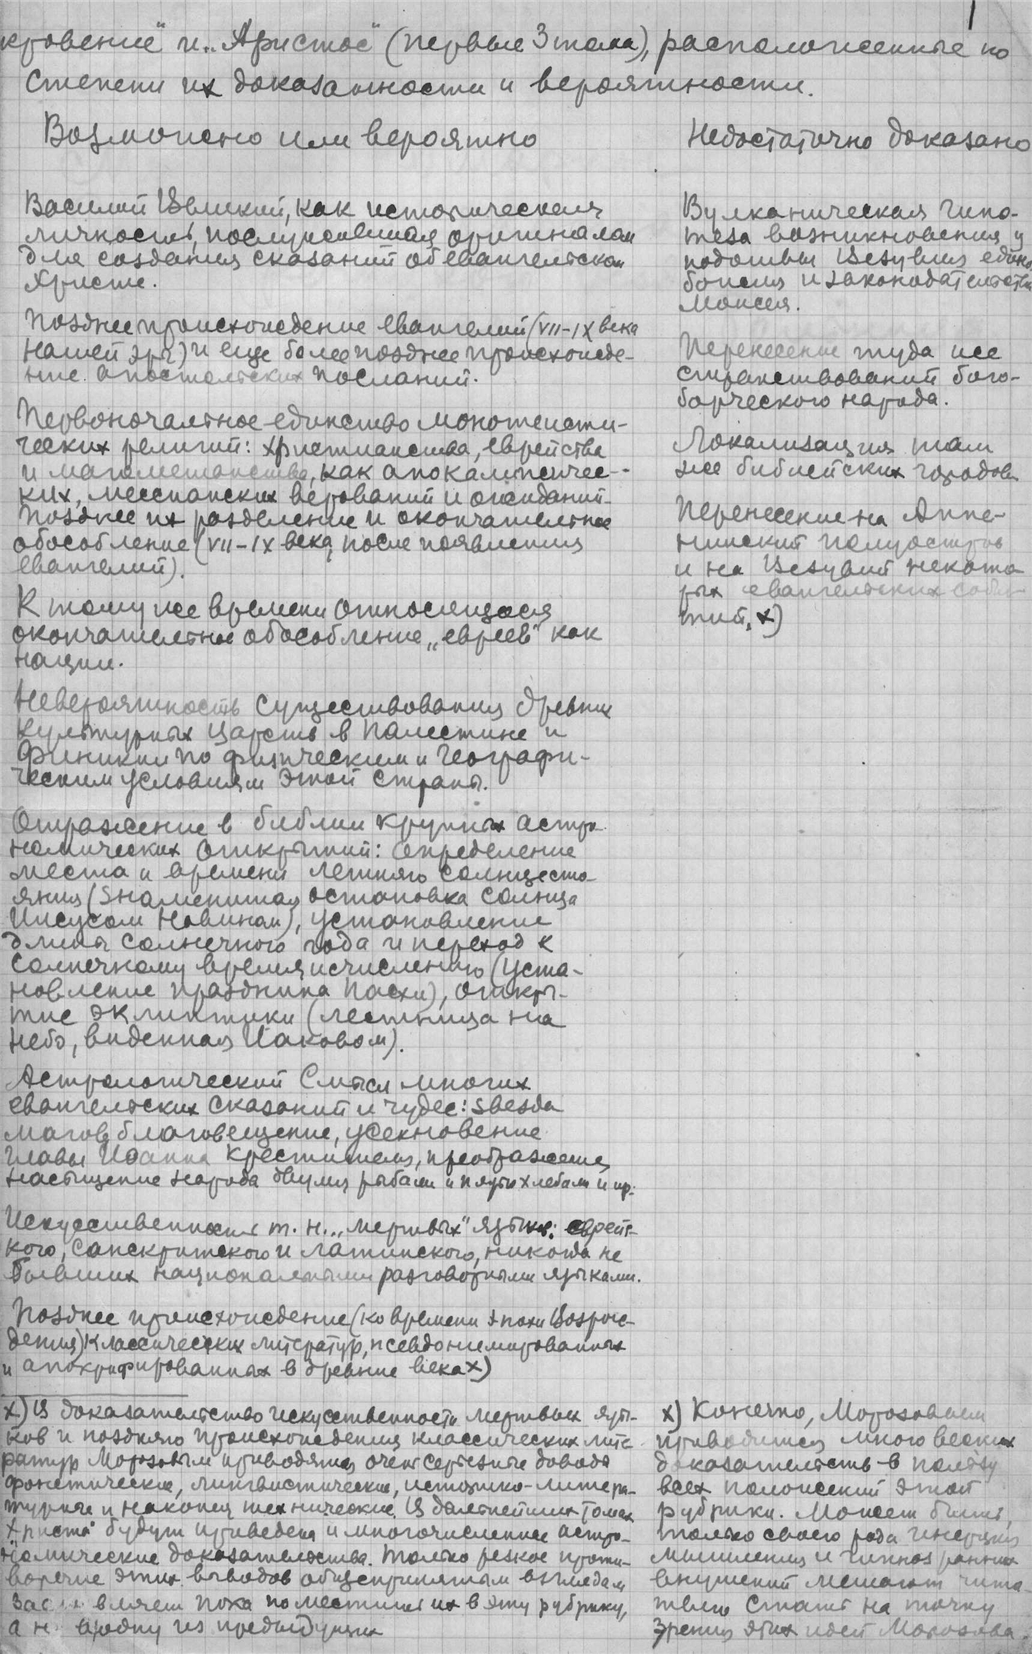 1
кровение" и "Христос" (первые 3 тома), расположенные по
степени их доказанности и вероятности.
Возможно или вероятно
Василий Великий, как историческая
личность, послужившая оригиналом
для создания сказаний об евангельском
Христе.
Позднее происхождение евангелий (VII-IX века
нашей эры) и еще более позднее происхожде-
ние апостольских посланий.
Первоначальное единство монотеисти-
ческих религий: христианства, еврейства
и магометанства, как апокалипсичес-
ких, мессианских верований и ожиданий.
Позднее их разделение и окончательное
обособление (VII-IX века, после появления
евангелий).
К тому же времени относящееся
окончательное обособление "евреев" как
нации.
Невероятность существования древних
культурных царств в Палестине и
Финикии по физическим и географи-
ческим условиям этой страны.
Отражение в библии крупных астро-
номических открытий: определение
места и времени летнего солнцесто-
яния (знаменитая остановка солнца
Иисусом Новином), установление
длины солнечного года и переход к
солнечному времяисчислению (уста-
новление праздника Пасхи), откры-
тие эклиптики (лестница на
небо, виденная Иаковом).
Астрологический смысл многих
евангельских сказаний и чудес: звезда
магов, благовещение, усекновение
главы Иоанна Крестителя, преображение,
насыщение народа двумя рыбами и пятью хлебами и пр.
Искусственность т. н. "мертвых" языков: еврейс-
кого, санскритского и латинского, никогда не
бывших национальными разговорными языками.
Позднее происхождение (ко времени эпохи Возрож-
дения) классических литератур, псевдонимированных
и апокрифированных в древние века x)
x) В доказательство искусственности мертвых язы-
ков и позднего происхождения классических лите-
ратур Морозовым приводятся очень серьезные доводы
фонетические, лингвистические, историко-литера-
турные и наконец технические. В дальнейших томах
"Христа" будут приведены и многочисленные астро-
номические доказательства. Только резкое проти-
воречие этих выводов общепринятым взглядам
пока поместить их в эту рубрику,
а н в одну из предыдущих
Недостаточно доказано
Вулканическая гипо-
теза возникновения у
подошвы Везувия едино-
божия и законодательства
Моисея.
Перенесение туда же
странствований бого-
борческого народа.
Локализация там
же библейских городов.
Перенесение на Аппе-
нинский полуостров
и на Везувий некото-
рых евангельских собы-
тий. x)
x) Конечно, Морозовым
приводится много веских
доказательств в пользу
всех положений этой
рубрики. Может быть,
только своего рода инерция
мышления и гипноз ранних
внушений мешают чита-
телю стать на точку
зрения этих идей Морозова.